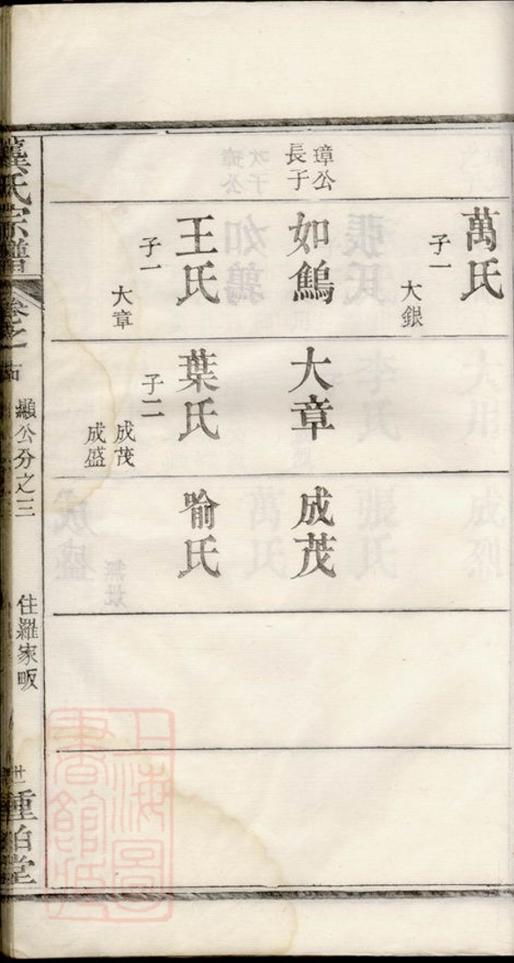 萬氏
子一
大銀
璋公
長子
如鷦
王氏
子一
大章
大章
葉氏
子二
成茂
成盛
成茂
喻氏
龔氏宗譜
卷之
顯公分之三
住羅家畈
世
種伯堂
上海圖書館藏